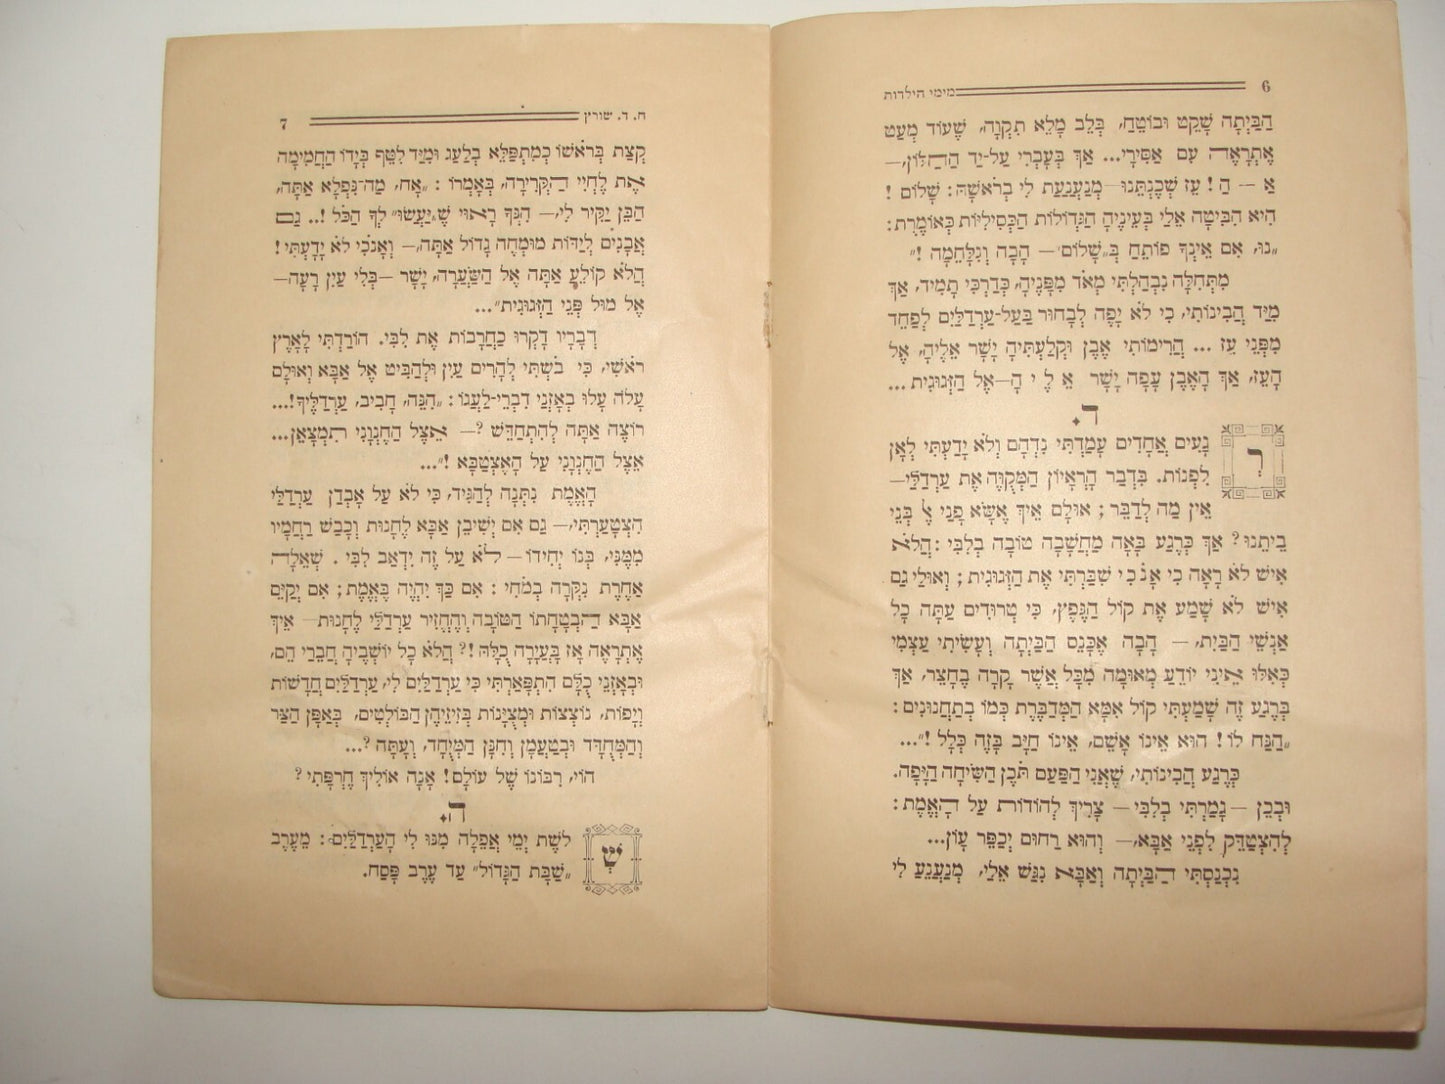 6 מימי הילדות
הַבַּיְתָה שָׁקֵט וּבוֹטֵחַ, בְּלֵב מָלֵא תִקְוָה, שֶׁעוֹד מְעַט
אֶתְרָאֶה עִם אַסִּירָי... אַךְ בְּעָבְרִי עַל-יַד הַחַלּוֹן,—
אַ — הַ! עֵז שְׁכֶנְתֵּנוּ מְנַעְנַעַת לִי בְרֹאשָׁהּ: שָׁלוֹם!
הִיא הִבִּיטָה אֵלַי בְּעֵינֶיהָ הַגְּדוֹלוֹת הַכְּסִילִיּוֹת כְּאוֹמֶרֶת:
„נוּ, אִם אֵינְךָ פוֹתֵחַ בְּ„שָׁלוֹם״ — הָבָה וְנִלָּחֵמָה!״
מִתְּחִלָּה נִבְהַלְתִּי מְאֹד מִפָּנֶיהָ, כְּדַרְכִּי תָמִיד, אַךְ
מִיָּד הֲבִינוֹתִי, כִּי לֹא יָפֶה לְבָחוּר בַּעַל-עַרְדַּלַּיִם לְפַחֵד
מִפְּנֵי עֵז ... הֲרִימוֹתִי אֶבֶן וְקִלַּעְתִּיהָ יָשָׁר אֵלֶיהָ, אֶל
הָעֵז, אַךְ הָאֶבֶן עָפָה יָשָׁר אֵ לֶ י הָ —אֶל הַזְּגוּגִית ...
ד.
רְגָעִים אֲחָדִים עָמַדְתִּי נִדְהָם וְלֹא יָדַעְתִּי לְאָן
לִפְנוֹת. בִּדְבַר הָרֵאָיוֹן הַמְּקֻוֶּה אֶת עַרְדַּלַּי—
אֵין מַה לְדַבֵּר; אוּלָם אֵיךְ אֶשָּׂא פָנַי אֶל בְּנֵי
בֵיתֵנוּ? אַךְ כְּרֶגַע בָּאָה מַחֲשָׁבָה טוֹבָה בְלִבִּי: הֲלֹא
אִישׁ לֹא רָאָה כִי אָנֹכִי שִׁבַּרְתִּי אֶת הַזְּגוּגִית; וְאוּלַי גַּם
אִישׁ לֹא שָׁמַע אֶת קוֹל הַנֶּפֶץ, כִּי טְרוּדִים עַתָּה כָל
אַנְשֵׁי הַבַּיִת, — הָבָה אֶכָּנֵס הַבַּיְתָה וְעָשִׂיתִי עַצְמִי
כְּאִלּוּ אֵינִי יוֹדֵעַ מְאוּמָה מִכָּל אֲשֶׁר קָרָה בֶחָצֵר, אַךְ
בְּרֶגַע זֶה שָׁמַעְתִּי קוֹל אִמָּא הַמְדַבֶּרֶת כְּמוֹ בְתַחֲנוּנִים:
„הַנַּח לוֹ! הוּא אֵינוֹ אָשֵׁם, אֵינוֹ חַיָּב בָּזֶה כְּלָל!״...
כְּרֶגַע הֲבִינוֹתִי, שֶׁאֲנִי הַפַּעַם תֹּכֶן הַשִּׂיחָה הַיָּפָה.
וּבְכֵן —גָּמַרְתִּי בְלִבִּי— צָרִיךְ לְהוֹדוֹת עַל הָאֱמֶת:
לְהִצְטַדֵּק לִפְנֵי אַבָּא,— וְהוּא רַחוּם יְכַפֵּר עָוֹן...
נִכְנַסְתִּי הַבַּיְתָה וְאַבָּא נִגַּשׁ אֵלַי, מְנַעְנֵעַ לִי
ח. ד. שורץ 7
קְצַת בְּרֹאשׁוֹ כְּמִתְפַּלֵּא בְלַעַג וּמִיָּד לִטֵּף בְּיָדוֹ הַחֲמִימָה
אֶת לֶחְיִי הַקְּרִירָה, בְּאָמְרוֹ: „אָח, מַה-נִּפְלָא אַתָּה,
הַבֵּן יַקִּיר לִי,— הִנְּךָ רָאוּי שֶׁ„יַּעֲשׂוּ״ לְךָ הַכֹּל!.. גַּם
אֲבָנִים לְיַדּוֹת מוּמְחֶה גָדוֹל אַתָּה,— וְאָנֹכִי לֹא יָדָעְתִּי!
הֲלֹא קוֹלֵעַ אַתָּה אֶל הַשַּׂעֲרָה, יָשָׁר —בְּלִי עַיִן רָעָה—
אֶל מוּל פְּנֵי הַזְּגוּגִית״...
דְבָרָיו דָקְרוּ כַחֲרָבוֹת אֶת לִבִּי. הוֹרַדְתִּי לָאָרֶץ
רֹאשִׁי, כִּי בֹשְׁתִּי לְהָרִים עַיִן וּלְהַבִּיט אֶל אַבָּא וְאוּלָם
עָלֹה עָלוּ בְאָזְנַי דִבְרֵי-לַעֲגוֹ: „הִנֵּה, חָבִיב, עַרְדַּלֶּיךָ!...
רוֹצֶה אַתָּה לְהִתְחַדֵּשׁ?— אֵצֶל הַחֶנְוָנִי תִּמְצָאֵן...
אֵצֶל הַחֶנְוָנִי עַל הָאִצְטַבָּא!״...
הָאֱמֶת נִתְּנָה לְהַגִּיד, כִּי לֹא עַל אָבְדַן עַרְדַּלַּי
הִצְטַעַרְתִּי,— גַּם אִם יְשִׁיבֵן אַבָּא לַחֲנוּת וְכָבַשׁ רַחֲמָיו
מִמֶּנִּי, בְּנוֹ יְחִידוֹ — לֹא עַל זֶה יִדְאַב לִבִּי. שְׁאֵלָה
אַחֶרֶת נִקְּרָה בְמֹחִי: אִם כַּךְ יִהְיֶה בֶּאֱמֶת; אִם יְקַיֵּם
אַבָּא הַבְטָחָתוֹ הַטּוֹבָה וְהֶחֱזִיר עַרְדַּלַּי לַחֲנוּת— אֵיךְ
אֶתְרָאֶה אָז בָּעֲיָרָה כֻלָּהּ!? הֲלֹא כָל יוֹשְׁבֶיהָ חֲבֵרַי הֵם,
וּבְאָזְנֵי כֻלָּם הִתְפָּאַרְתִּי כִּי עַרְדַּלַּיִם לִי, עַרְדַּלַּיִם חֲדָשׁוֹת
וְיָפוֹת, נוֹצְצוֹת וּמְצֻיָּנוֹת בְּזִיזֵיהֶן הַבּוֹלְטִים, בְּאַפָּן הַצַּר
וְהַמְחֻדָּד וּבְטַעֲמָן וְחִנָּן הַמְּיֻחָד, וְעָתָּה?...
הוֹי, רִבּוֹנוֹ שֶׁל עוֹלָם! אָנָה אוֹלִיךְ חֶרְפָּתִי?
ה.
שְׁלֹשֶׁת יְמֵי אֲפֵלָה מִנּוּ לִי הָעַרְדַּלַּיִם: מֵעֶרֶב
„שַׁבַּת הַגָּדוֹל״ עַד עֶרֶב פָּסַח.